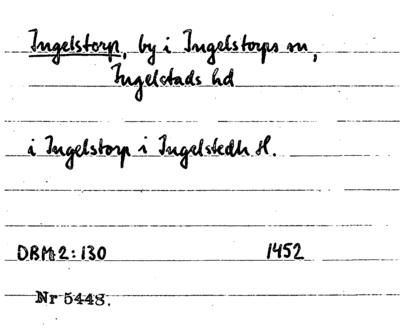 Ingelstorp, by i Ingelstorps sn,
Ingelstads hd
i Ingelstorp i Ingelstedh H.
DRM 2:130 1452
Nr 5448.